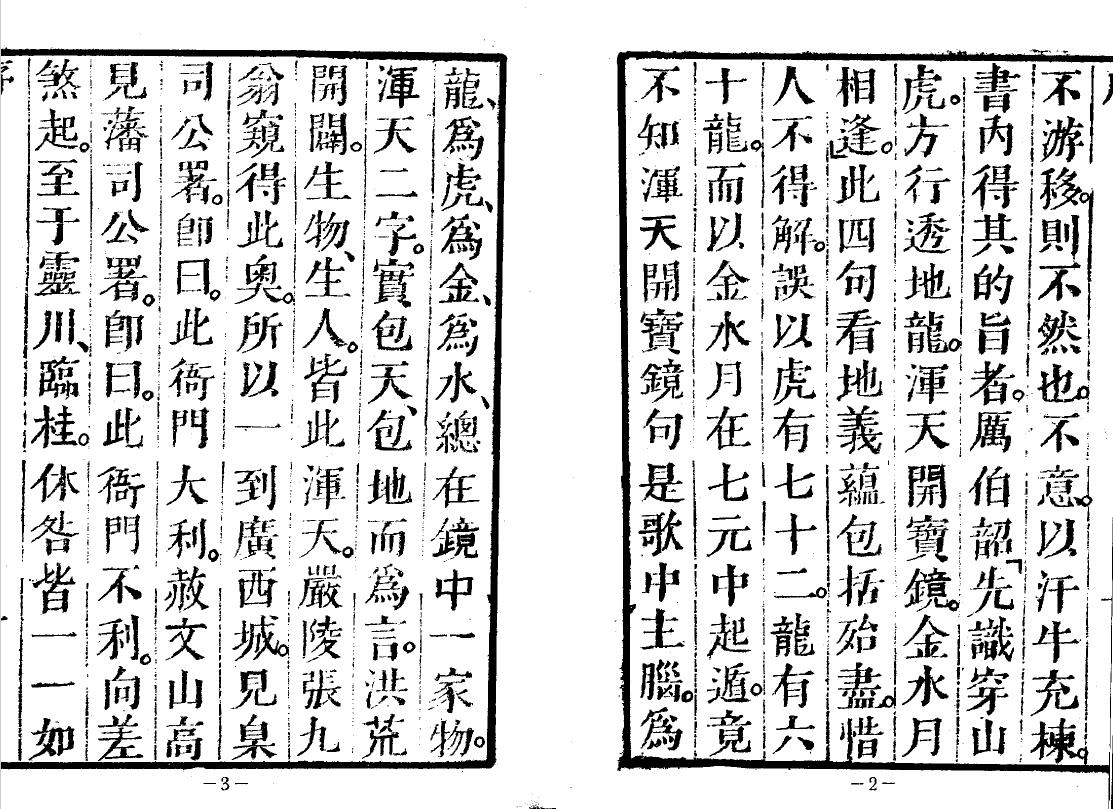 不游移。則不然也。不意。以汗牛充棟。
書內得其的旨者。厲伯韶「先識穿山
虎。方行透地龍。渾天開寶鏡。金水月
相逢。」此四句看地義蘊包括殆盡。惜
人不得解。誤以虎有七十二。龍有六
十龍。而以金水月在七元中起遁。竟
不知渾天開寶鏡句是歌中主腦。爲
—2—
龍、爲虎、爲金、爲水、總在鏡中一家物。
渾天二字。實包天、包地而爲言。洪荒
開闢。生物、生人。皆此渾天。嚴陵張九
翁窺得此奧。所以一到廣西城。見臬
司公署。卽曰。此衙門大利。赦文山高
見藩司公署。卽曰。此衙門不利。向差
煞起。至于靈川、臨桂。休咎皆一一如
—3—